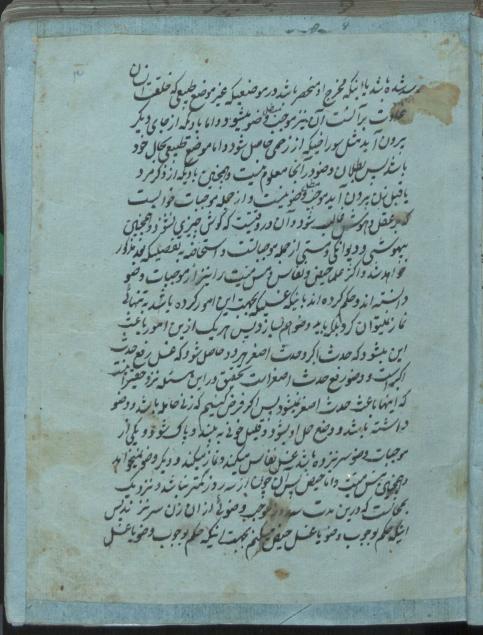 شده باشد یا اینکه مخرج او منحصر باشد در موضعیکه غیر موضع طبیعی که خلقت انسان
بر آنست آن نیز موجب وضو میشود و اما بادیکه از جای دیگر
بیرون آید مثل سوراخیکه از زخمی حاصل شود و اما موضع طبیعی بحال خود
باشد پس بطلان وضو در آنجا معلوم نیست و همچنین بادیکه از ذکر مرد
یا قبل زن بیرون آید موجب وضو نیست و از جمله موجبات خوابیست
که بر عقل و هوش شود و آن در وقتیست که گوش چیزی نشنود و همچنین
بیهوشی و دیوانگی و مستی از جمله موجباتست و استحاضه بتفصیلیکه مذکور
خواهد شد و اکثر علما حیض و نفاس و مس میت را نیز از موجبات وضو
دانسته اند و حکم کرده اند باینکه غسلیکه بجهت این امور کرده باشد به تنهائی
نماز نمیتوان کرد بلکه باید وضو هم بسازد پس هر یک ازین امور باعث
این میشود که حدث اکبر و حدث اصغر هر دو حاصل شود که غسل رفع حدث
اکبرست و وضو رفع حدث اصغر است تحقیق در این مسئله نزد حقیر آنست
که اینها باعث حدث اصغر نمیشود پس اگر فرض کنیم که زنی حامله باشد و وضو
داشته باشد و وضع حمل او بشود و قلیل خونی به بیند و پاک شود و یکی از
موجبات وضو سر نزده باشد غسل نفاس میکند و نماز میکند و دیگر وضو نمیخواهد
و همچنین مس میت و اما حیض پس چون از سه روز کمتر نباشد و نزدیک
بمحالست که درین مدت سه روز موجب وضوئی از آن زن سر نزند پس
اینکه حکم بوجوب وضو با غسل حیض میکنم بجهت اینکه حکم بوجوب وضو با غسل